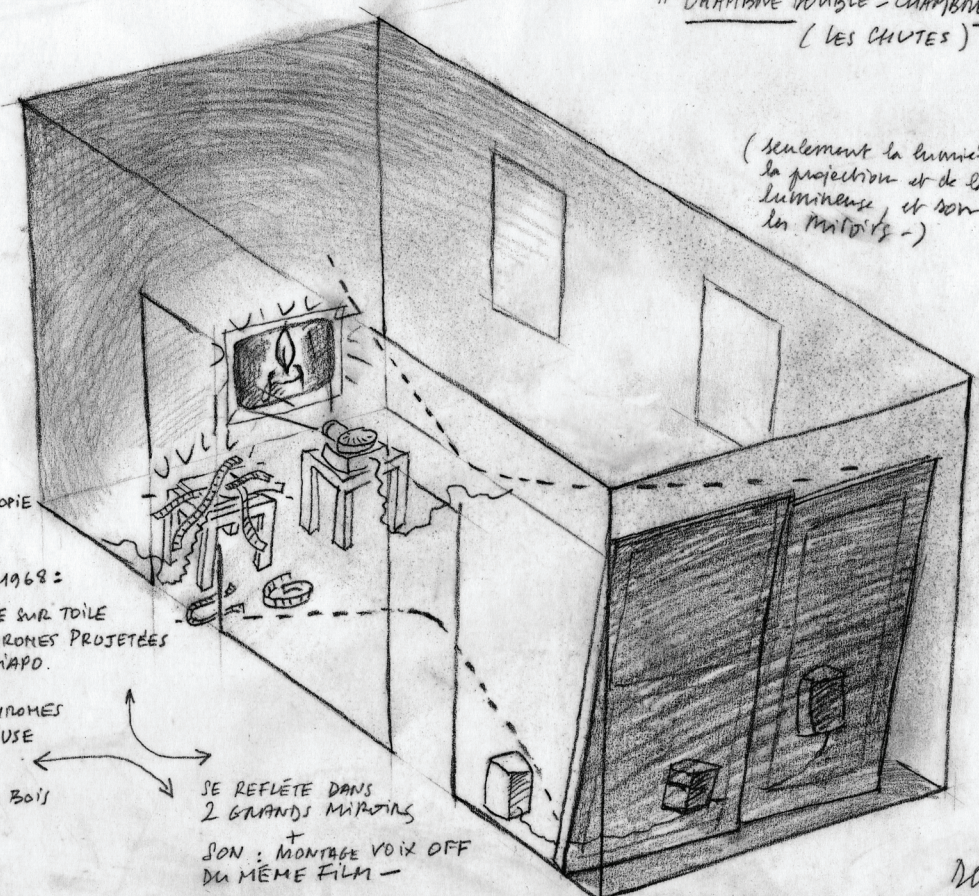 " CHAMBRE DOUBLE - CHAMBRE
( LES CHUTES )
( seulement la lumiè
la projection et de l
lumineuse, et son
les miroirs - )
OPIE
1968 :
E SUR TOILE
ROMES PROJETÉES
DIAPO.
HROMES
USE
BOIS
SE REFLÉTE DANS
2 GRANDS MIROIRS
+
SON : MONTAGE VOIX OFF
DU MÊME FILM -